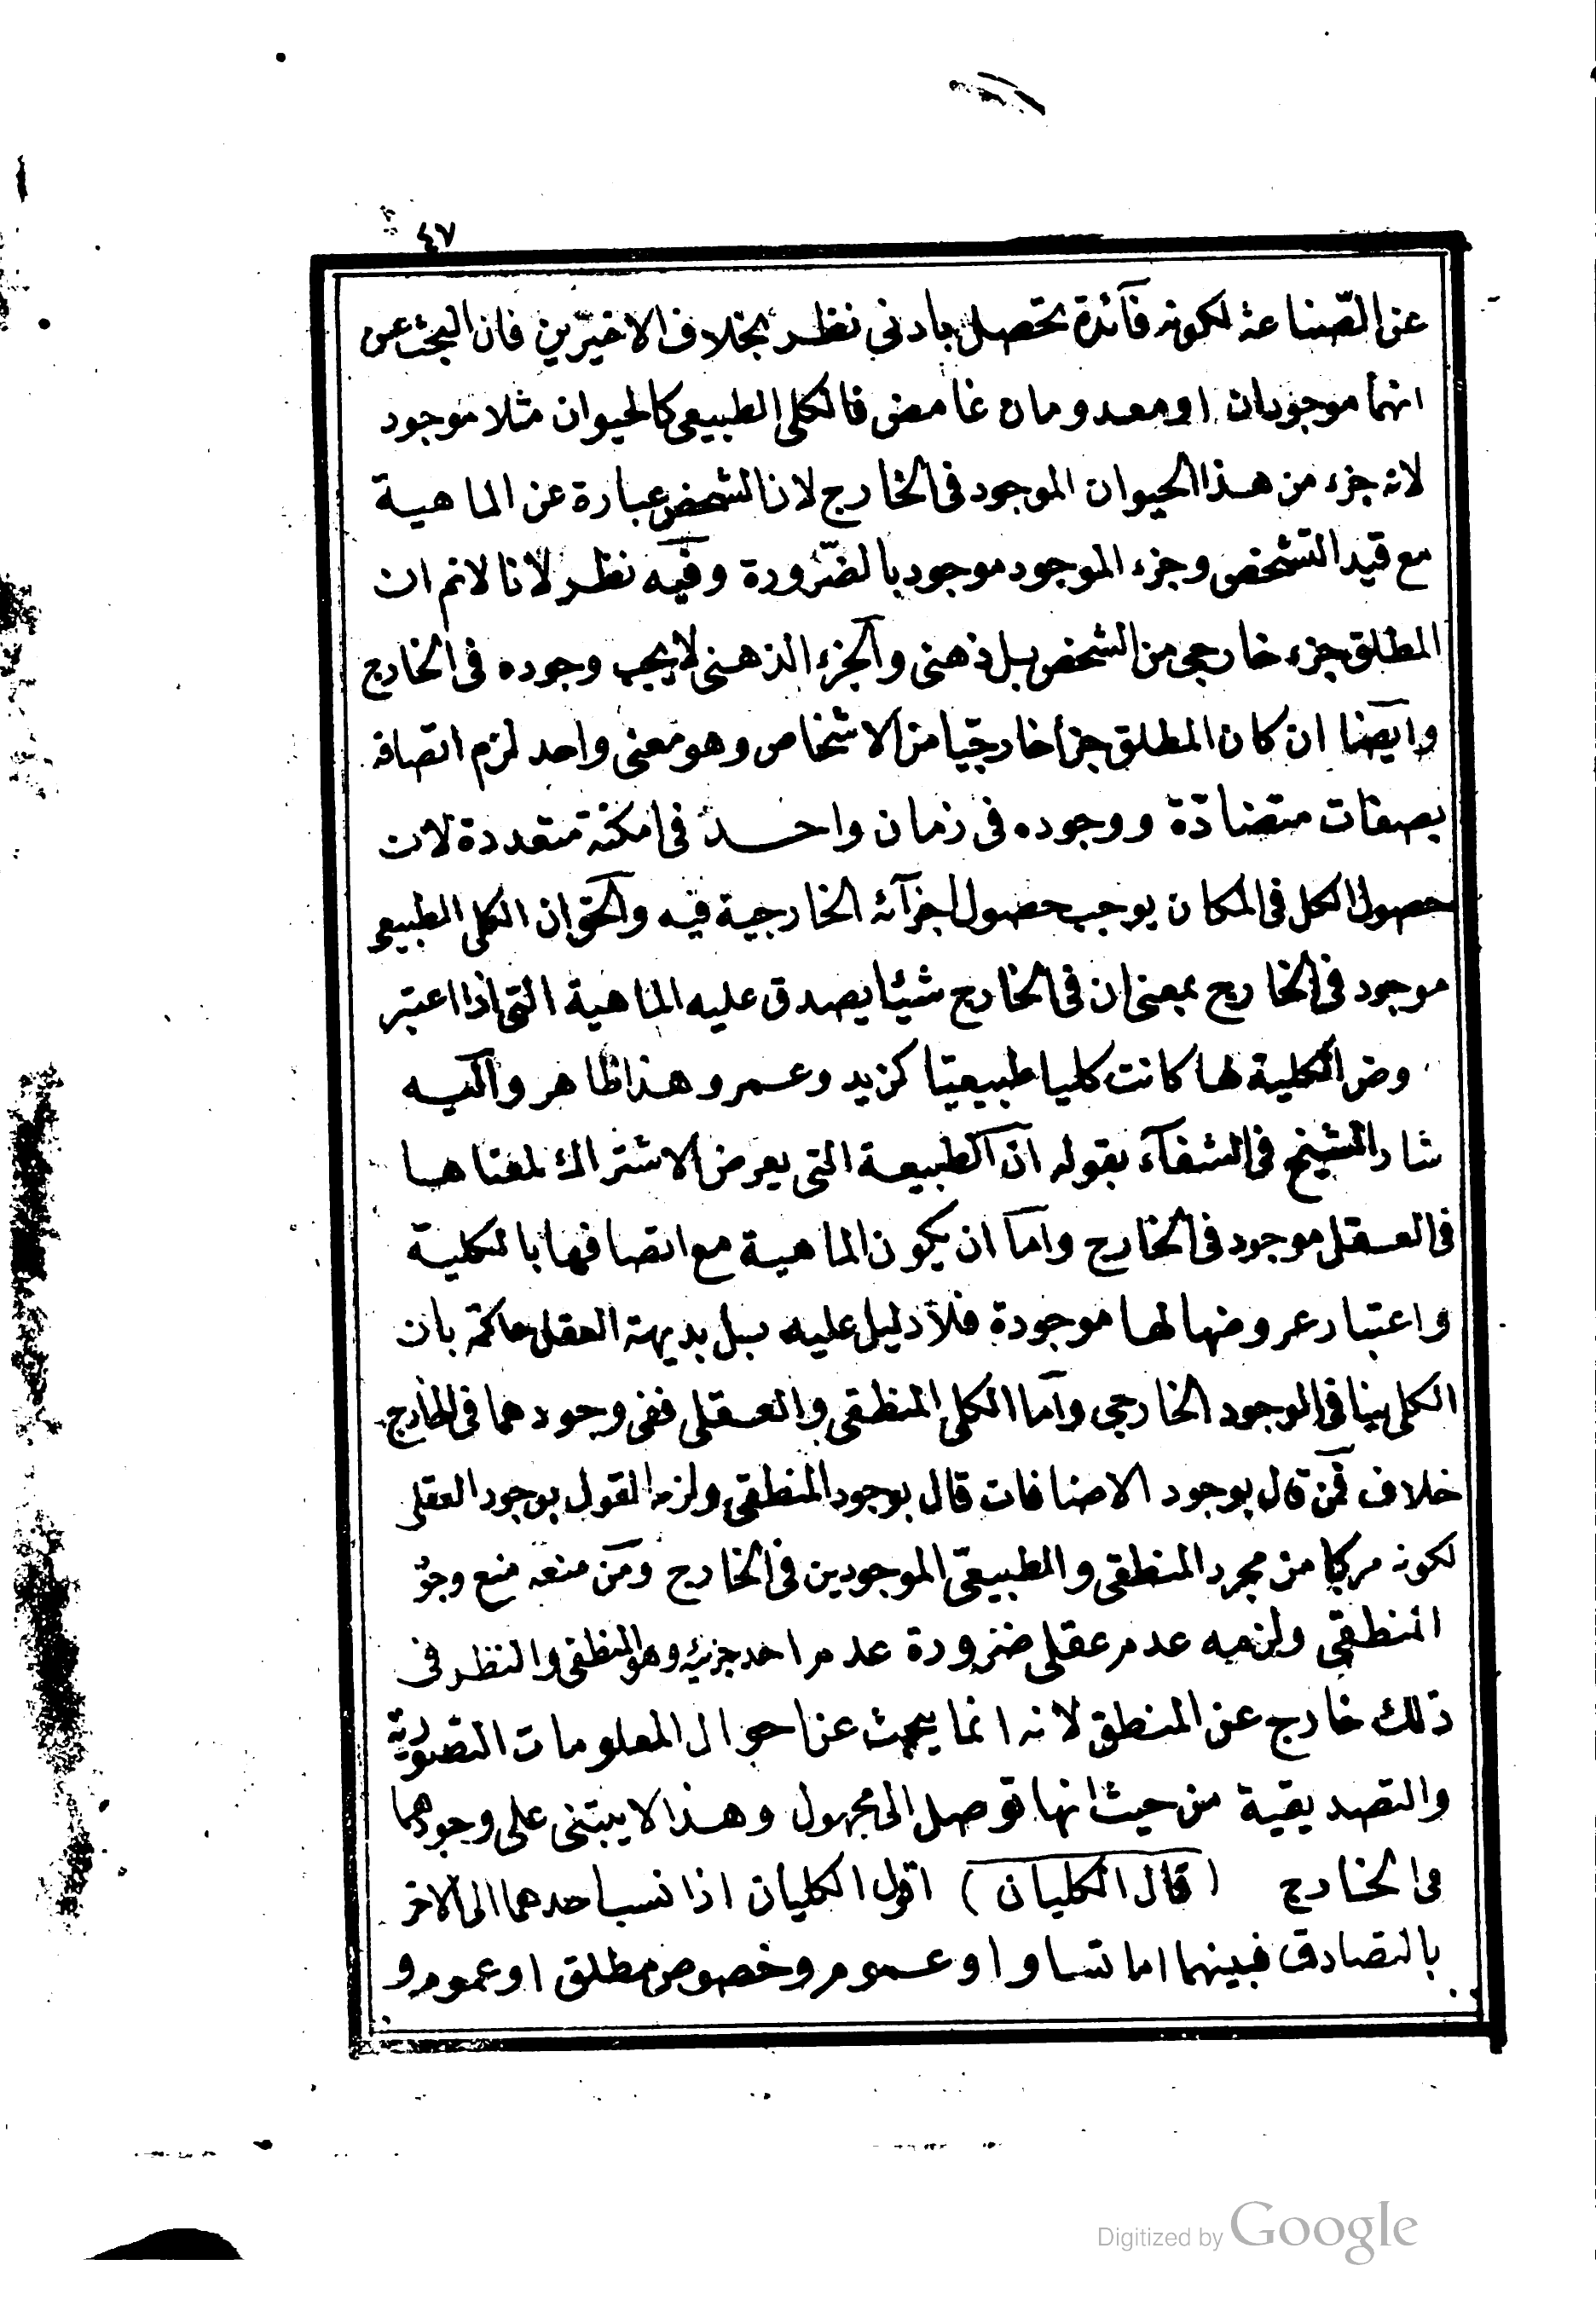 ٤٧
عن الصّناعة لكونه فآئدة تحصل بادنى نظر بخلاف الاخيرين فان البحث عن
انهما موجودان او معدومان غامض فالكلى الطبيعى كالحيوان مثلا موجود
لانه جزء من هذا الحيوان الموجود فى الخارج لان الشخص عبارة عن الماهية
مع قيد التشخص وجزء الموجود موجود بالضّرورة وفيه نظر لانا لانم ان
المطلق جزء خارجى من الشخص بل ذهنى والجزء الذهنى لا يجب وجوده فى الخارج
وايضا ان كان المطلق جزأ خارجيّا من الاشخاص وهو معنى واحد لزم اتصافه
بصفات متضادّة ووجوده فى زمان واحد فى امكنة متعددة لان
حصول الكل فى المكان يوجب حصول اجزآئه الخارجية فيه والحق ان الكلى الطبيعى
موجود فى الخارج بمعنى ان فى الخارج شيئا يصدق عليه الماهية التى اذا اعتبر
وض الكلية لها كانت كليا طبيعيّا كزيد وعمرو هذا ظاهر واليه
شار الشيخ فى الشفآء بقوله ان الطبيعة التى يعرض الاشتراك لمعناها
فى العقل موجود فى الخارج واما ان يكون الماهية مع اتصافها بالكلية
واعتبار عروضها لها موجودة فلا دليل عليه بل بديهة العقل حاكمة بان
الكلى ينافى الوجود الخارجى واما الكلى المنطقى والعقلى ففى وجودهما فى الخارج
خلاف فمن قال بوجود الاضافات قال بوجود المنطقى ولزمه القول بوجود العقلى
لكونه مركبا من مجرد المنطقى والطبيعى الموجودين فى الخارج ومن منعه منع وجو
المنطقى ولزمه عدم عقلى ضرورة عدم احد جزئيه وهو المنطقى والنظر فى
ذلك خارج عن المنطق لانه انما يبحث عن احوال المعلومات التصورية
والتصديقية من حيث انها توصل الى مجهول وهذا لا يبتنى على وجودهما
فى الخارج (قال الكليان) اقول الكليان اذا نسب احدهما الى الاخر
بالتصادق فبينهما اما تساو او عموم وخصوص مطلق او عموم و
Digitized by Google